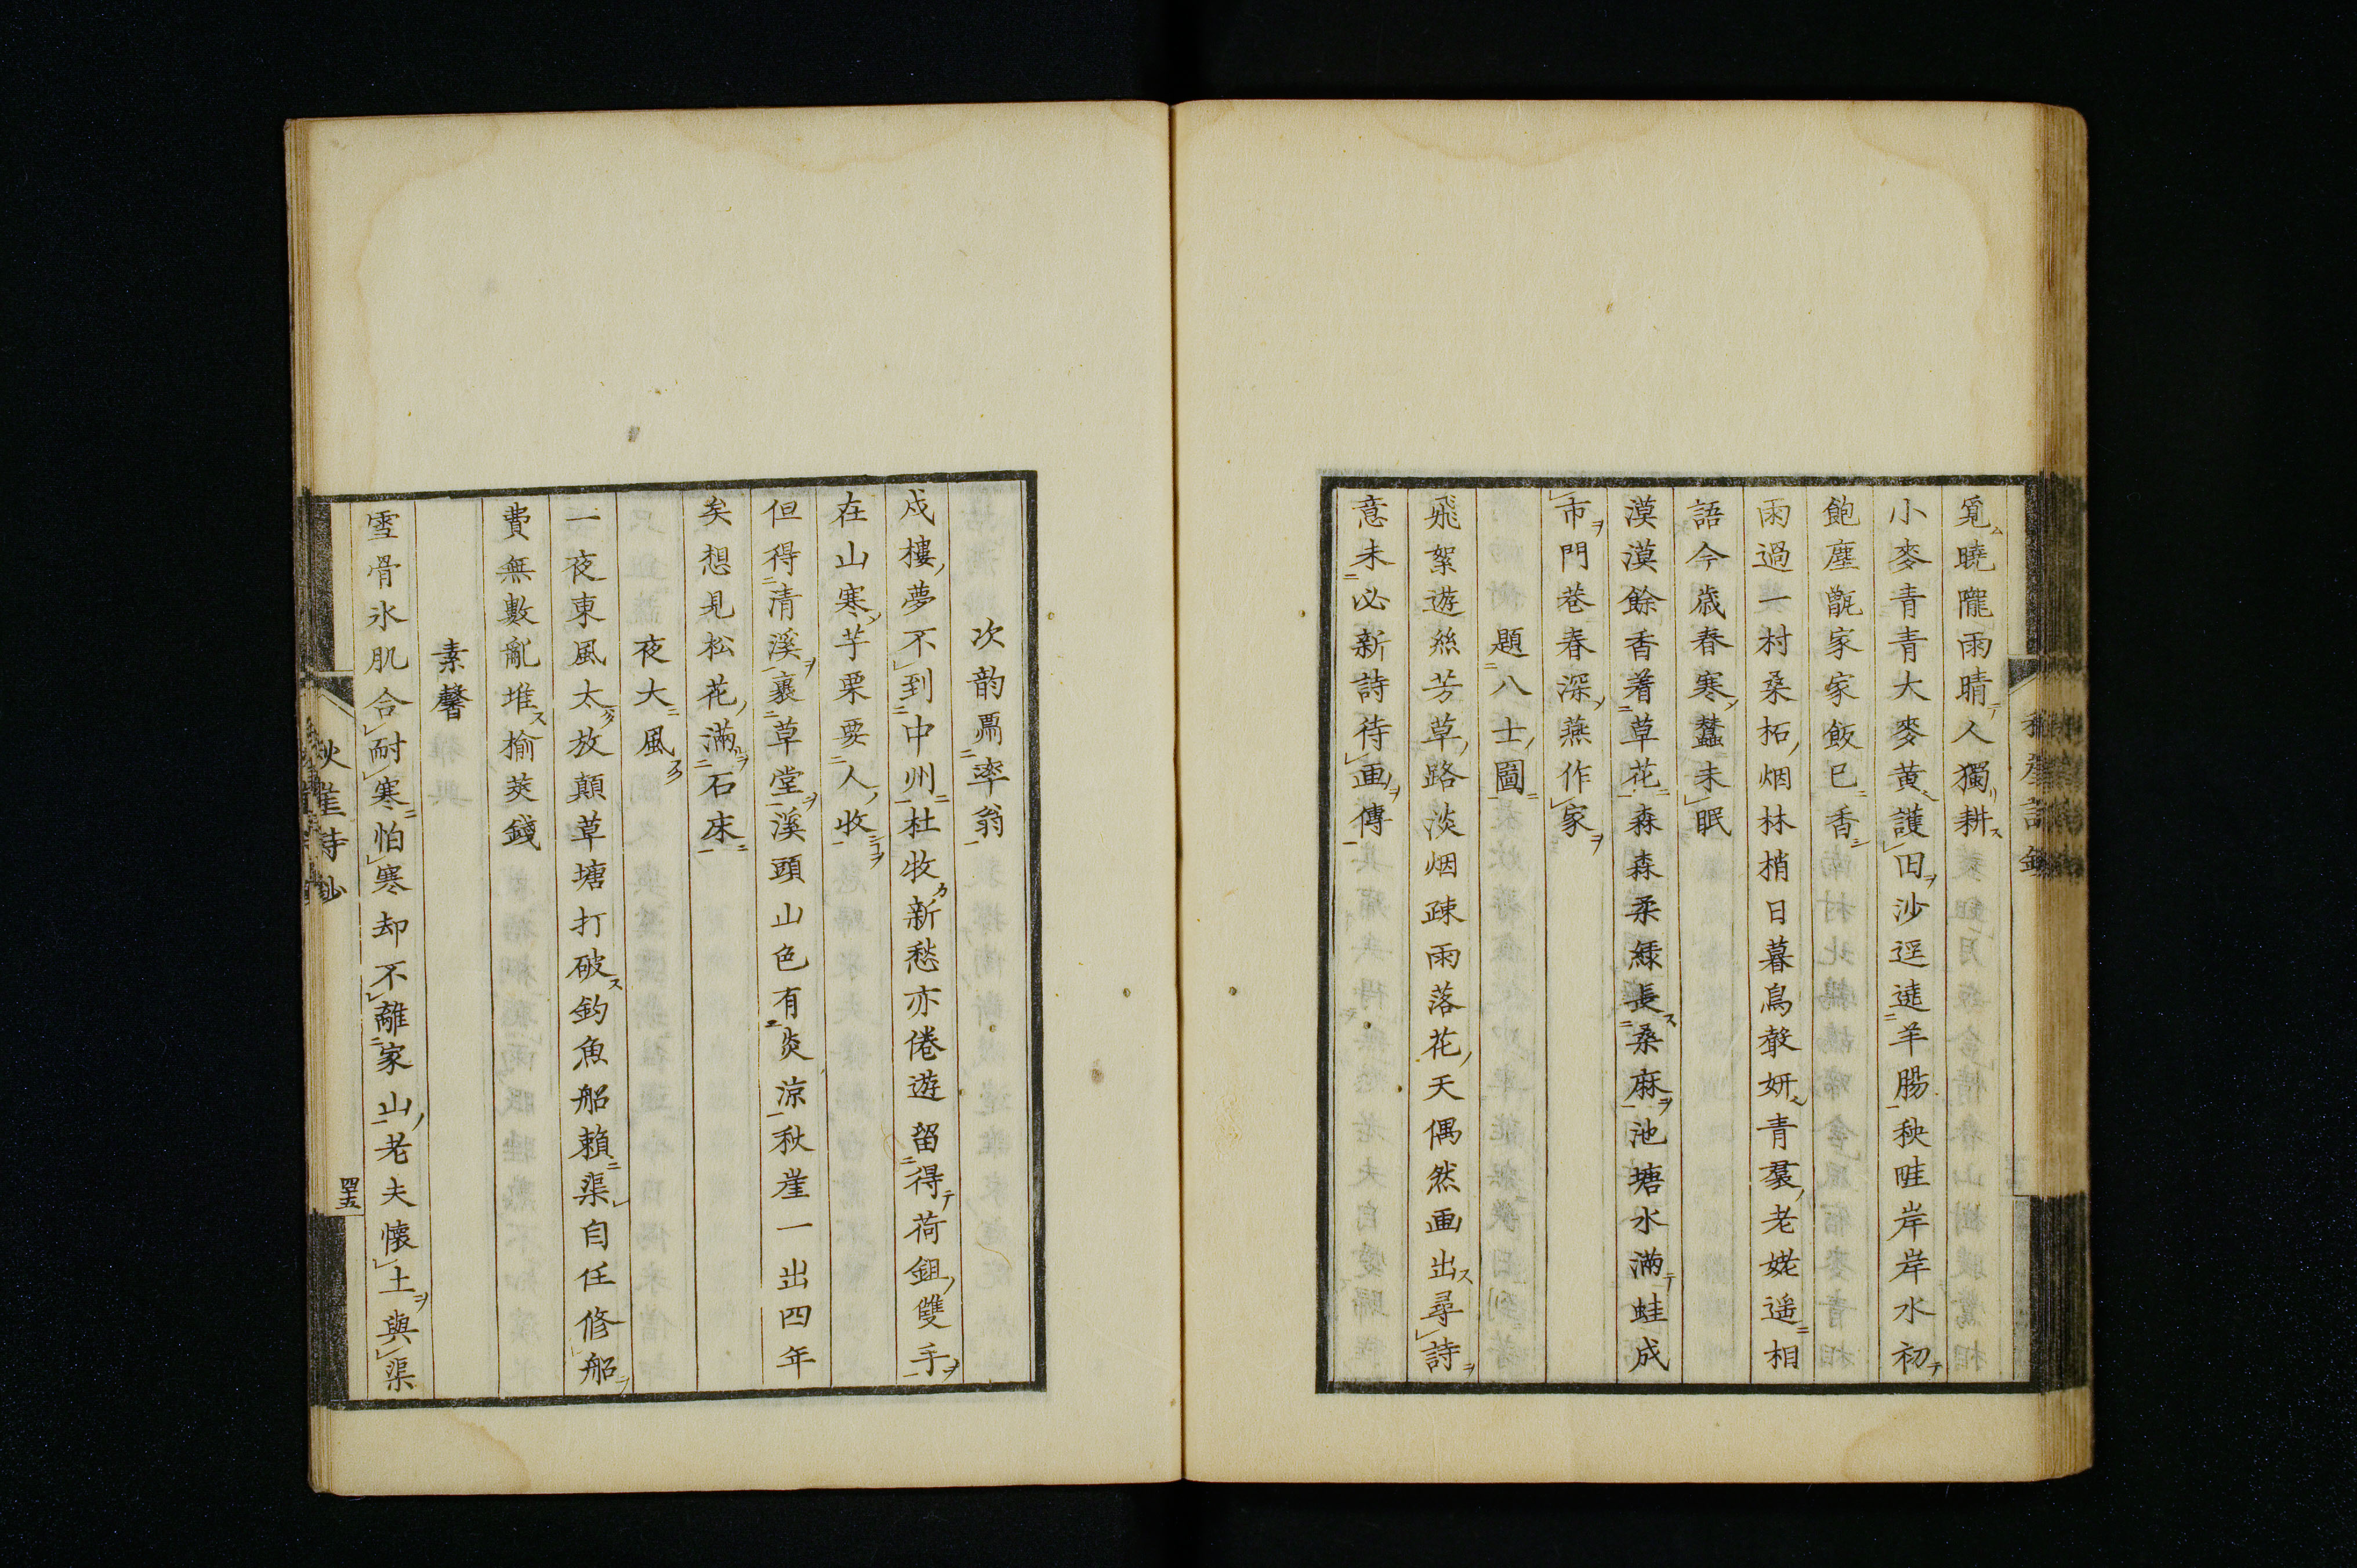 覓曉隴雨晴人獨耕
小麥青青大麥黄護田沙逕遶羊腸秧畦岸岸水初
飽塵甑家家飯已香
雨過一村桑柘烟林梢日暮鳥聲妍青裠老姥遥相
語今歳春寒蠶未眠
漠漠餘香着草花森森柔緑長桑麻池塘水滿蛙成
市門巷春深燕作家
題八士圖
飛絮遊絲芳草路淡烟疎雨落花天偶然画出尋詩
意未必新詩待画傳
次韵禼率翁
戍樓夢不到中州杜牧新愁亦倦遊留得荷鉏雙手
在山寒芋栗要人收
但得清溪裹草堂溪頭山色有炎涼秋崖一出四年
矣想見松花滿石床
夜大風
一夜東風太放顛草塘打破釣魚船頼渠自任修船
費無數亂堆榆莢錢
素馨
雪骨氷肌合耐寒怕寒却不離家山老夫懐土與渠
秋崖詩鈔
四五